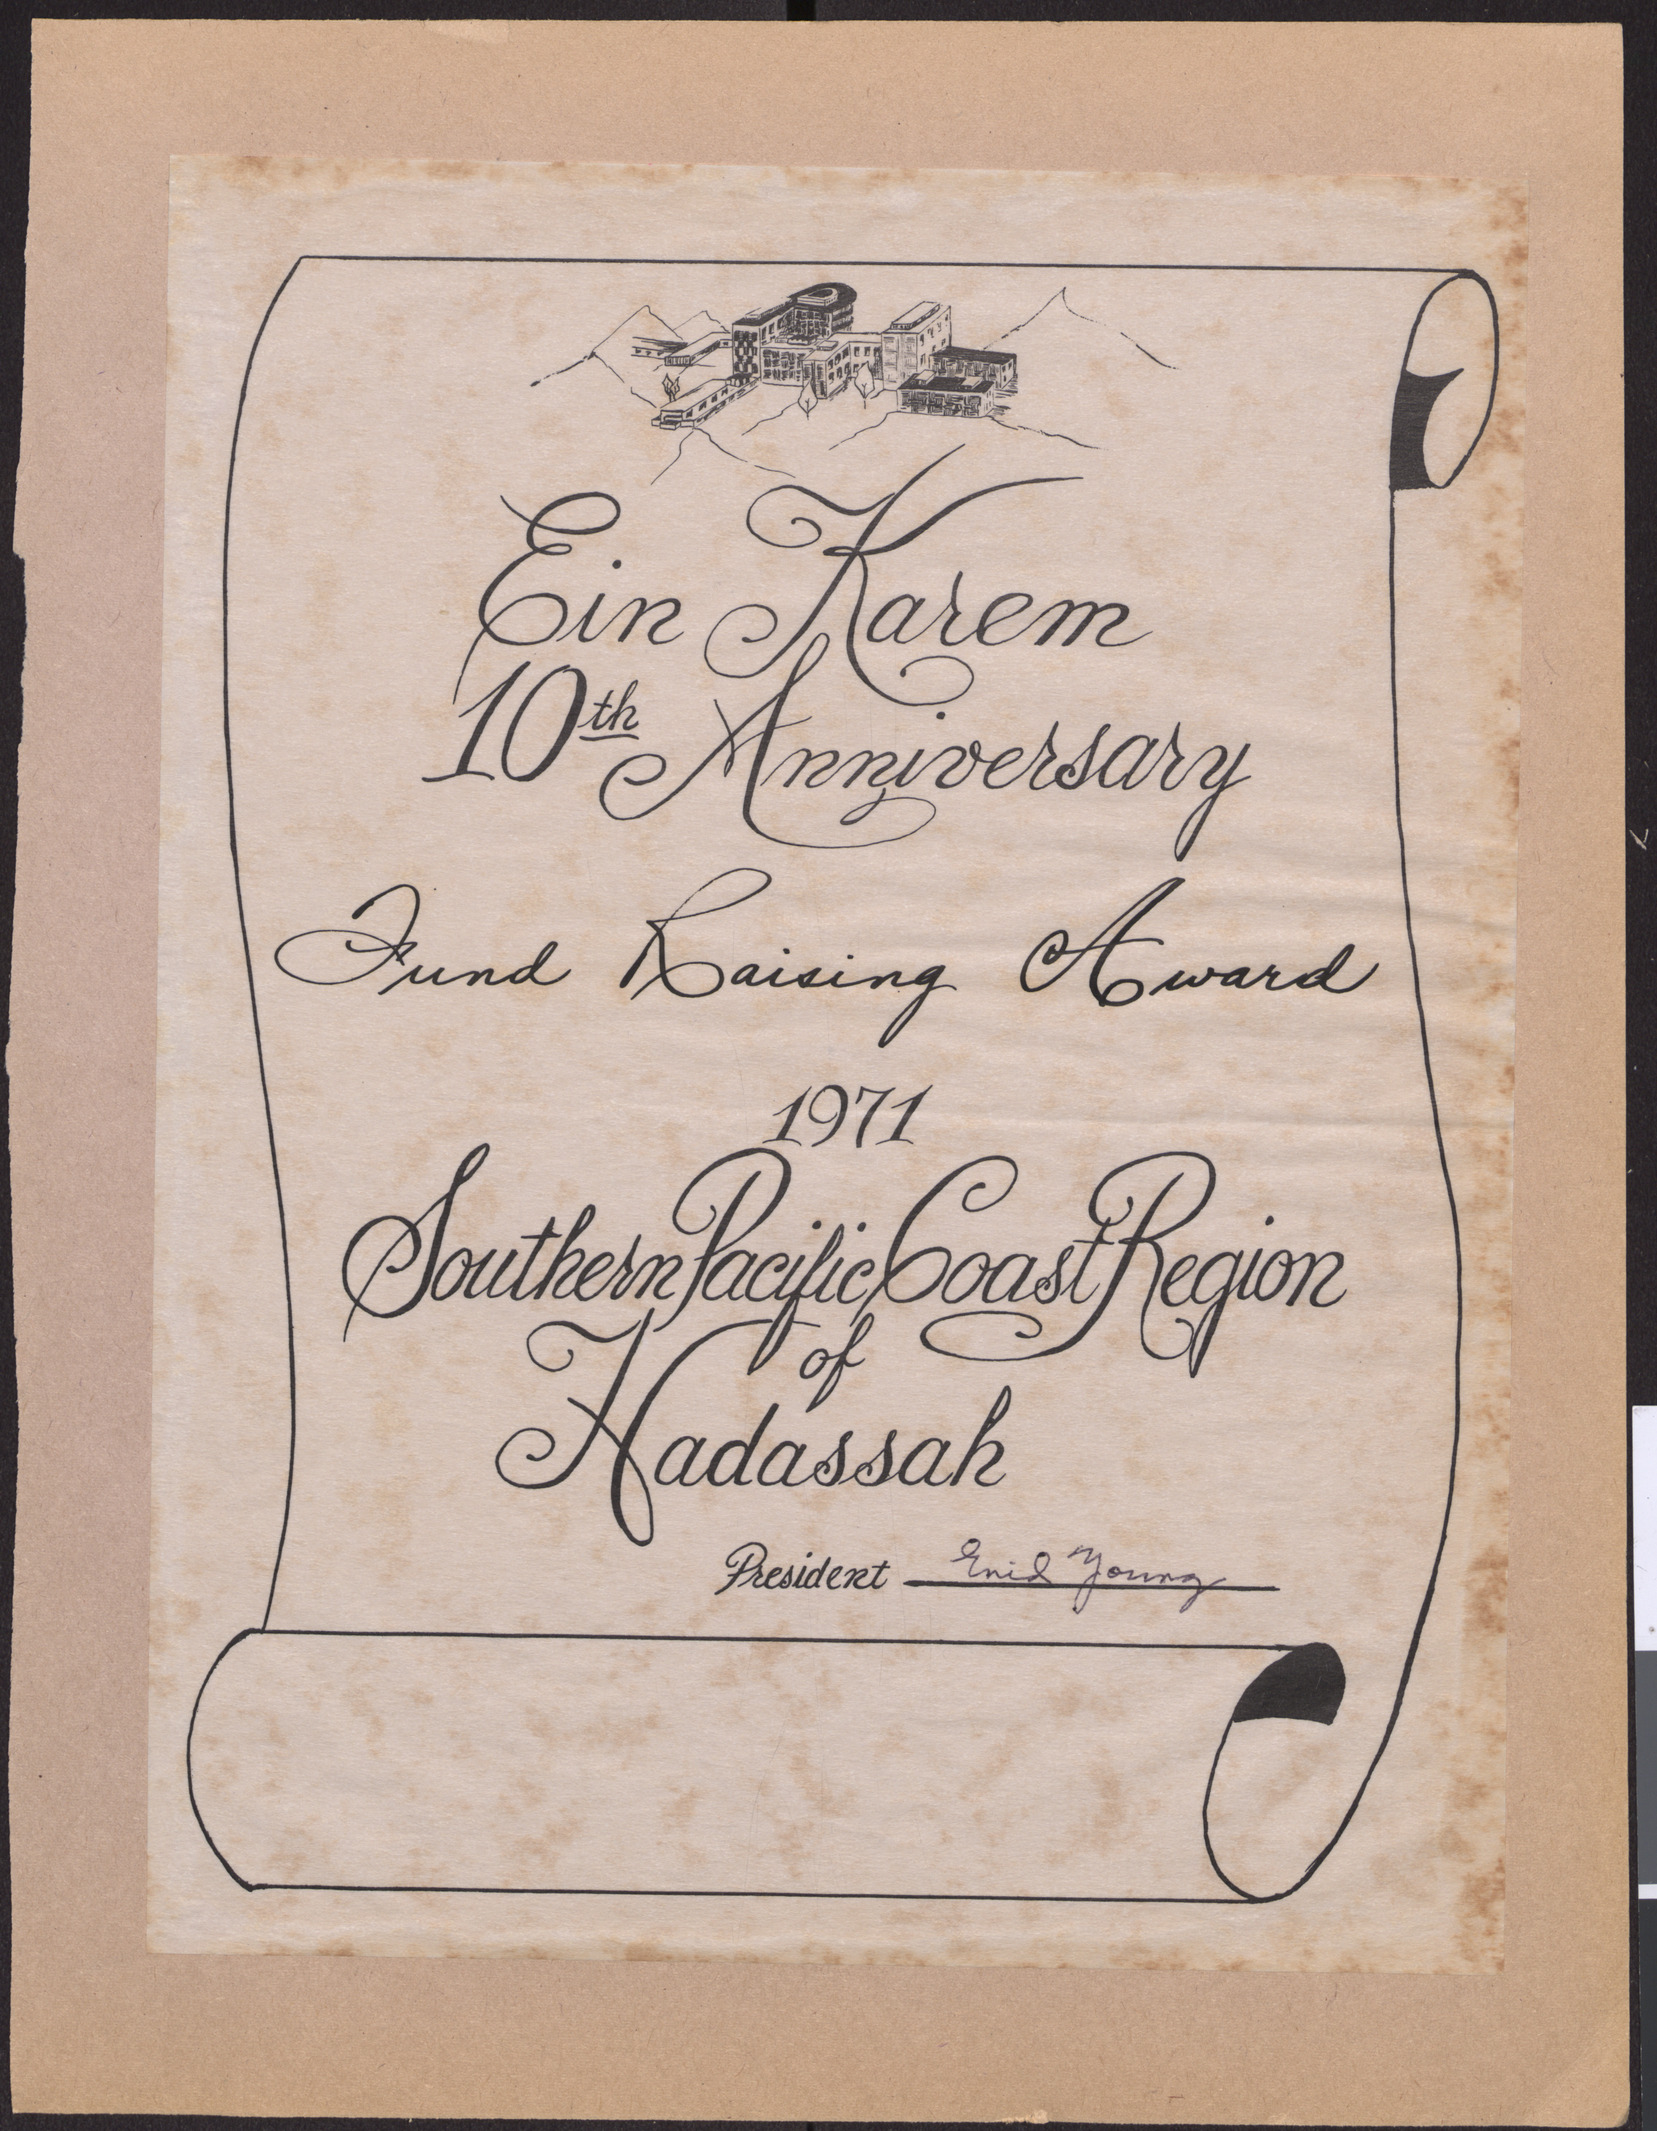 Ein Karem
10th Anniversary
Fund Raising Award
1971
Southern Pacific Coast Region
of
Hadassah
President Enid Young